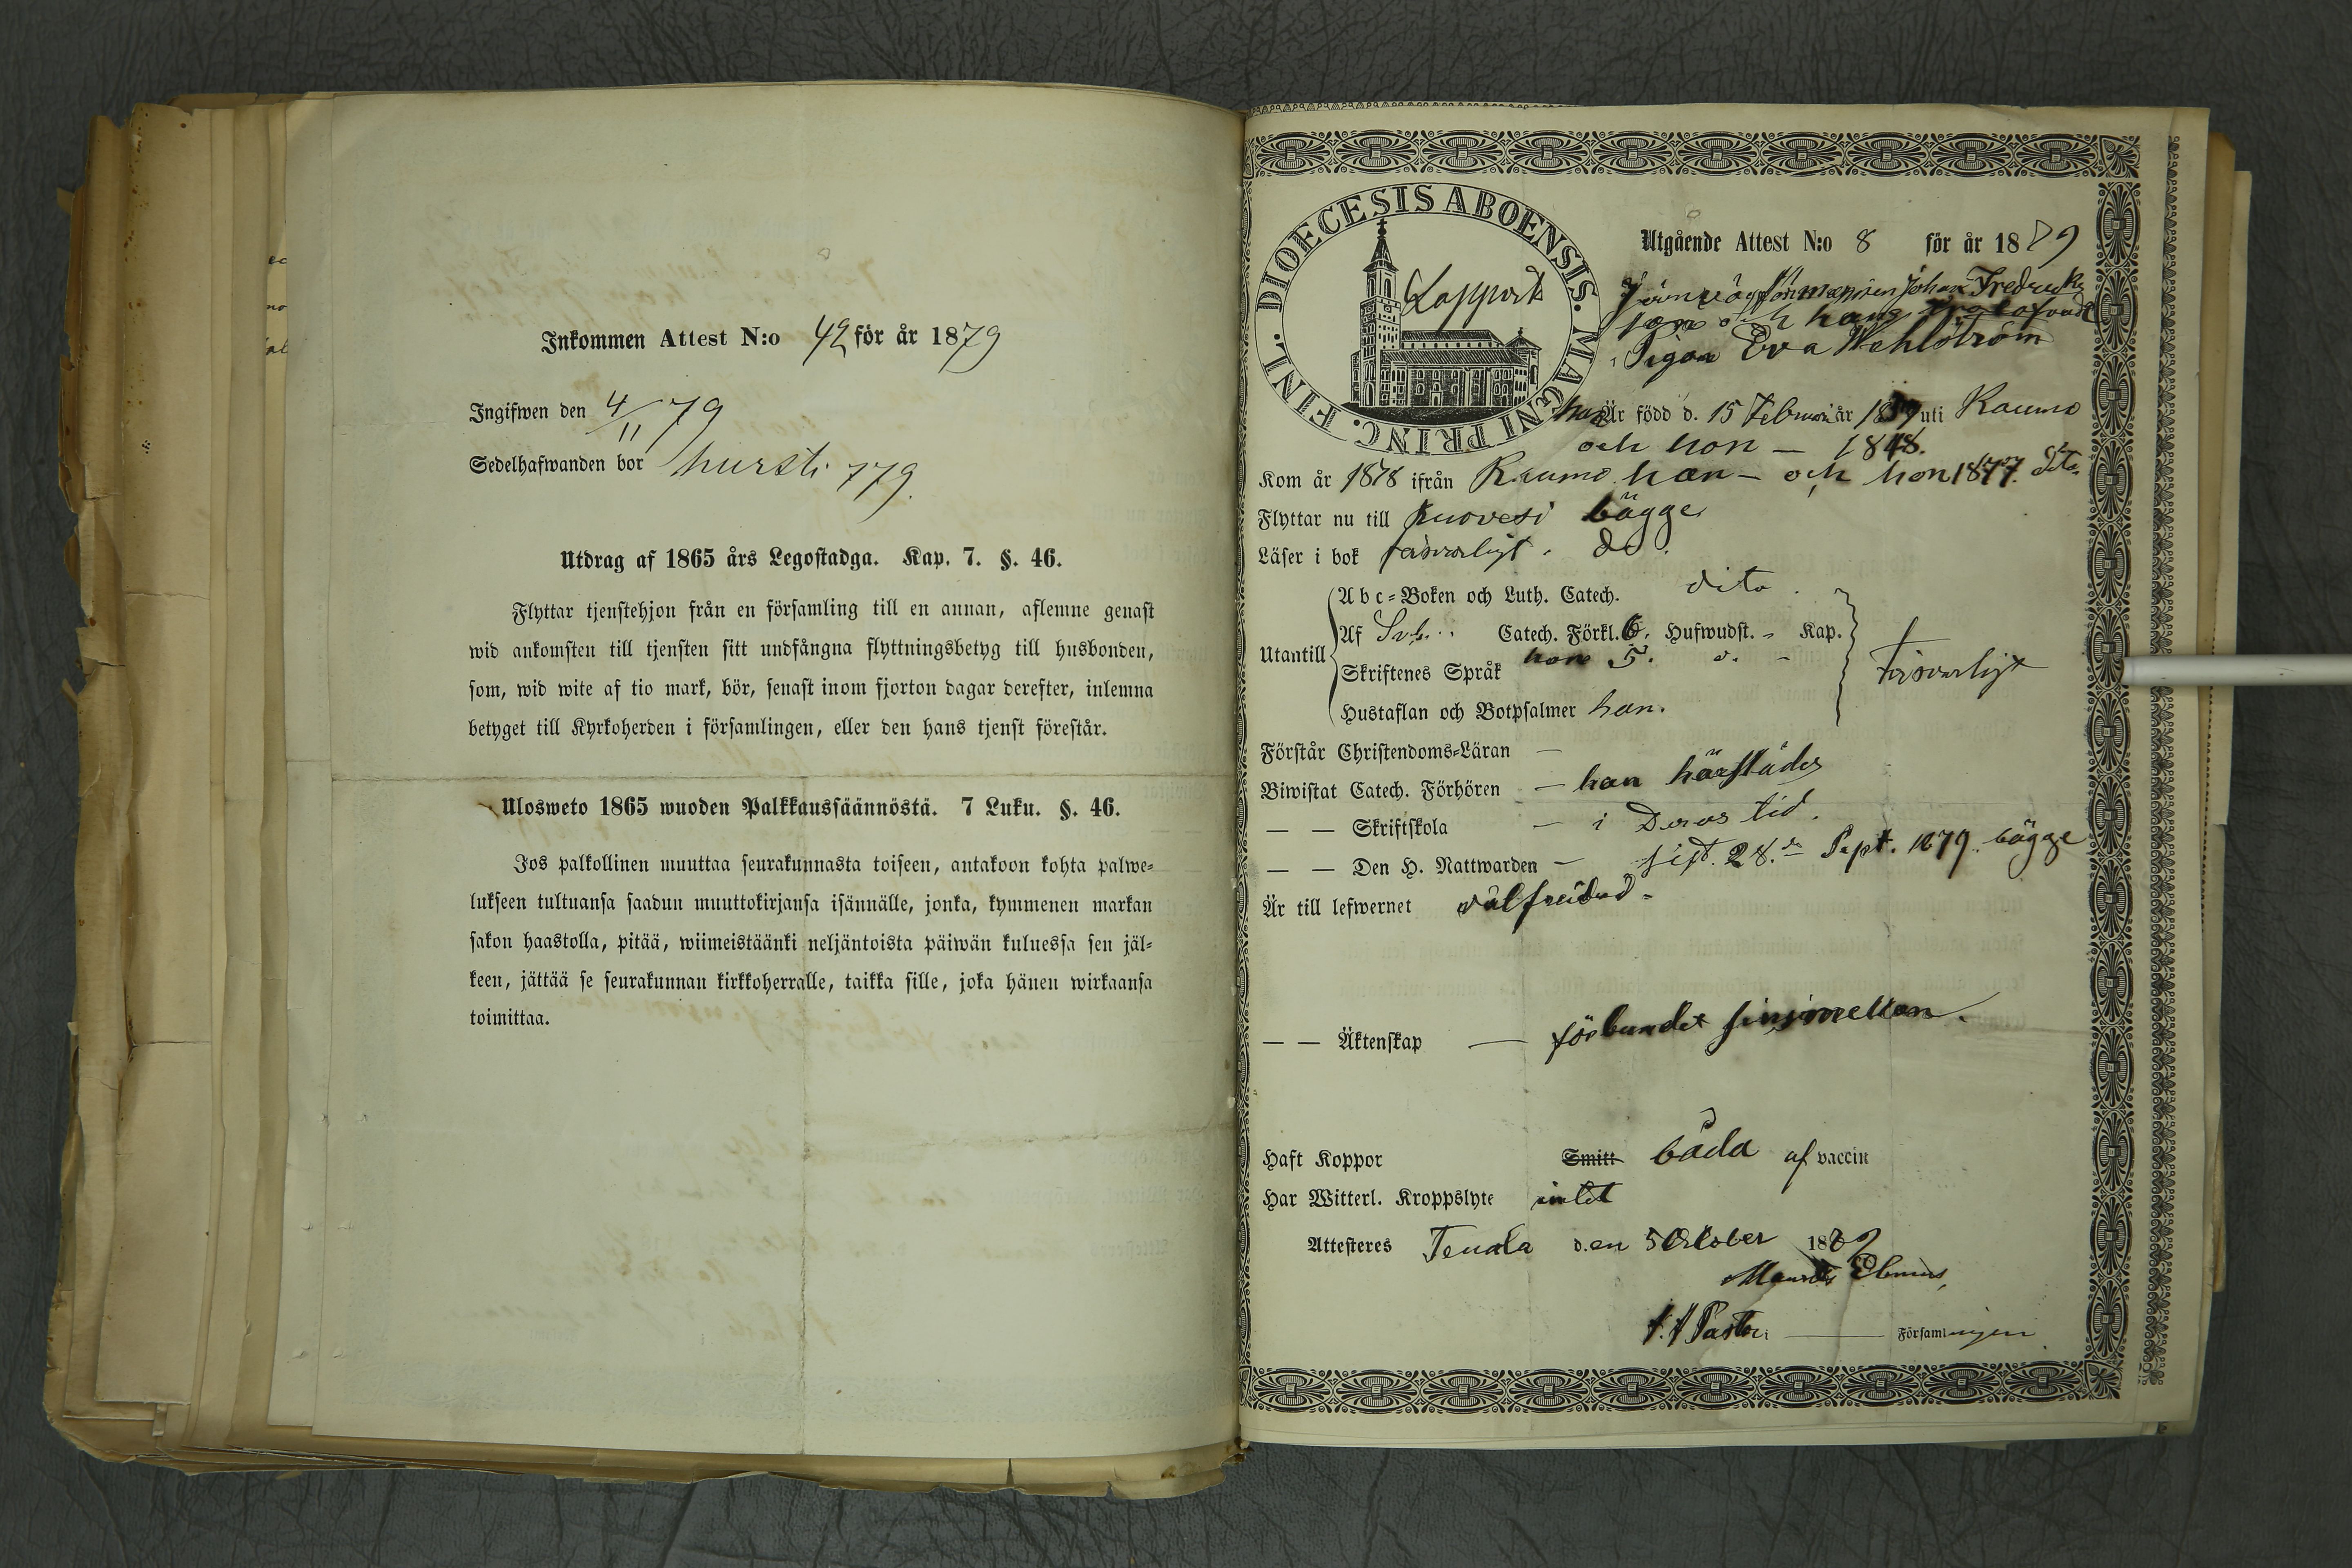 Inkommen Attest N:o 42 för år 1879
Ingifwen den 4/11 79
Sedelhafwanden bor hursti 779.
Utdrag af 1865 års Legostadga. Kap. 7. §. 46.
Flyttar tjenstehjon från en församling till en annan, aflemne genast
wid ankomsten till tjensten sitt undfångna flyttningsbetyg till husbonden,
som, wid wite af tio mark, bör, senast inom fjorton dagar derefter, inlemna
betyget till Kyrkoherden i församlingen, eller den hans tjenst förestår.
Ulosweto 1865 wuoden Palkkaussäännöstä. 7 Luku. §. 46.
Jos palkollinen muuttaa seurakunnasta toiseen, antakoon kohta palwe-
lukseen tultuansa saadun muuttokirjansa isännälle, jonka, kymmenen markan
sakon haastolla, pitää, wiimeistäänki neljäntoista päiwän kuluessa sen jäl-
keen, jättää se seurakunnan kirkkoherralle, taikka sille, joka hänen wirkaansa
toimittaa.
DIOECESIS ABOENSIS. MAGNI PRINC. FINL.
Lappvik
Utgående Attest N:o 8 för år 1879
Jernvägsförmannen Johan Fredriks
son och hans trolofvade
Pigan Eva Wehlström
han Är född d. 15 Februari år 1857 uti Raumo
och hon — 1848.
Kom år 1878 ifrån Raumo han — och hon 1877. Dito
Flyttar nu till Kuovesi bägge
Läser i bok försvarligt. do.
Utantill
Abc-Boken och Luth. Catech. dito.
Af Sveb. Catech. Förkl. 6. Hufwudst. - Kap.
Skriftenes Språk hon 5. d. -
Hustaflan och Botpsalmer han.
försvarligt
Förstår Christendoms-Läran —
Biwistat Catech. Förhören — han härstädes
— — Skriftskola — i Deras tid.
— — Den H. Nattwarden — sist. 28.de Sept. 1879. bägge
Är till lefwernet välfrejdad -
— — Äktenskap — förbundet sinsimellan.
Haft Koppor Smitt båda af vaccin
Har Witterl. Kroppslyte intet
Attesteres Tenala den 5 Oktober 1879
t.f. Pastor i — Församlingen